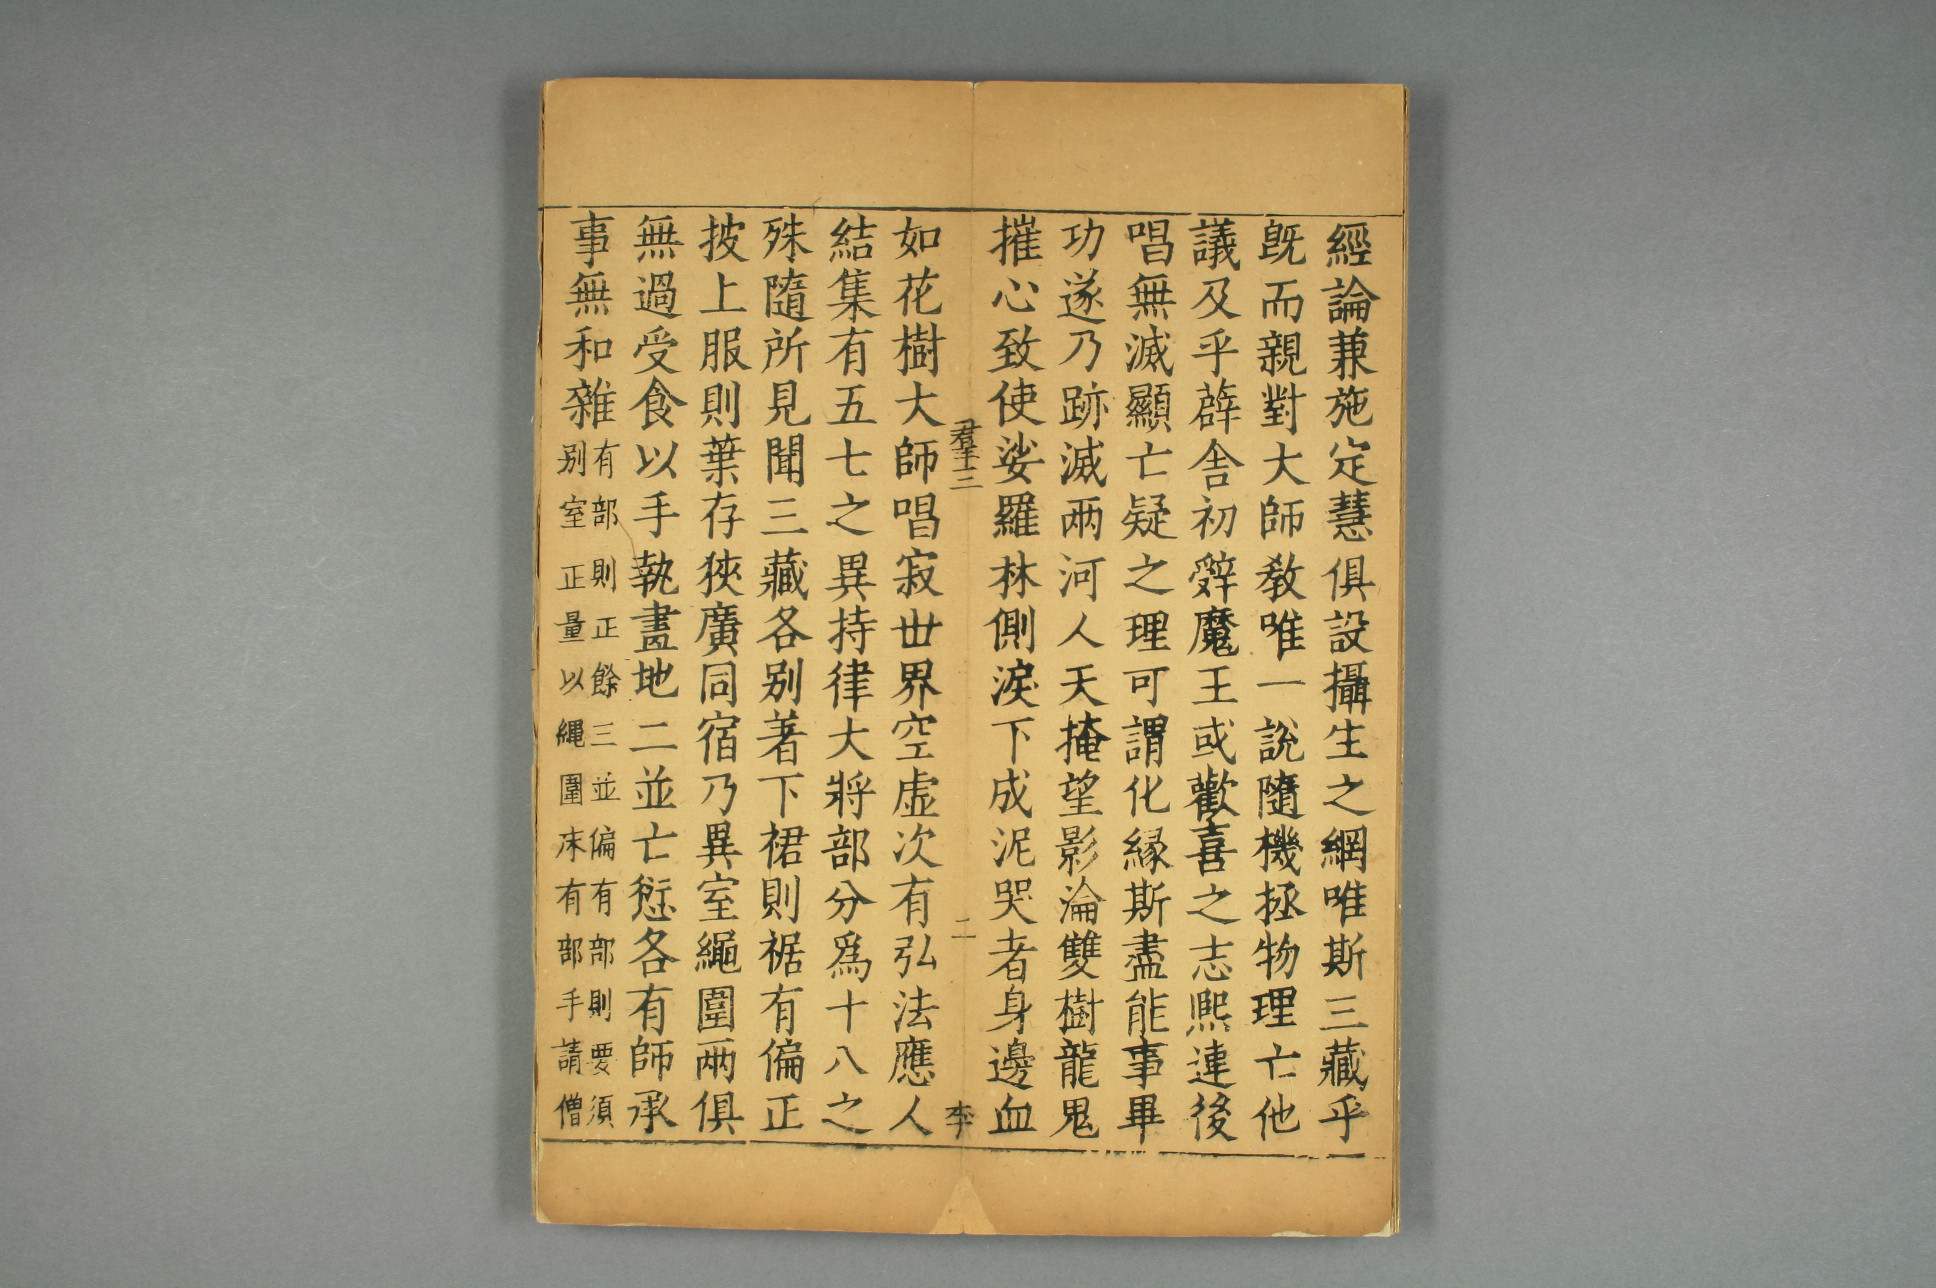 經論兼施定慧俱設攝生之網唯斯三藏乎
旣而親對大師敎唯一說隨機拯物理亡他
議及乎薜舍初辭魔王惑歡喜之志熙連後
唱無滅顯亡疑之理可謂化緣斯盡能事畢
功遂乃跡滅兩河人天掩望影淪雙樹龍鬼
摧心致使娑羅林側淚下成泥哭者身邊血
羣三
二
李
如花樹大師唱寂世界空虛次有弘法應人
結集有五七之異持律大將部分爲十八之
殊隨所見聞三藏各別著下裙則裾有偏正
披上服則葉存狹廣同宿乃異室繩圍兩俱
無過受食以手執畫地二並亡愆各有師承
事無和雜
有部則正餘三並偏有部則要須
別室正量以繩圍床有部手請僧